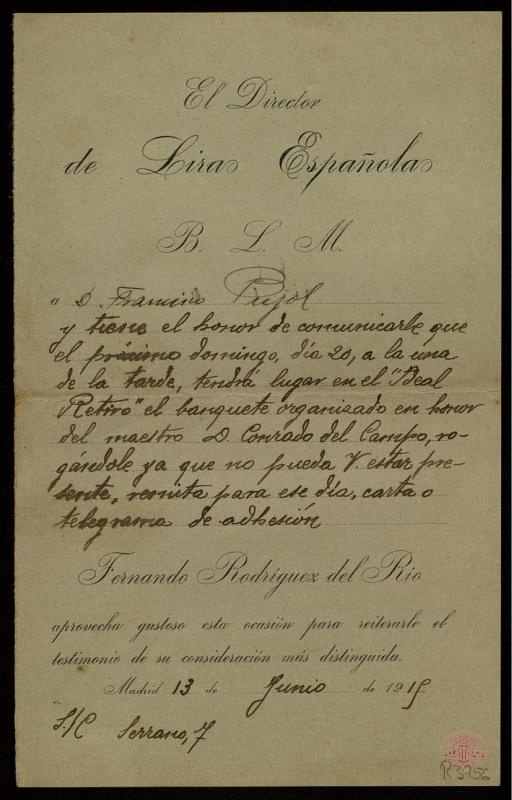 El Director
de Lira Española
B. L. M.
a D. Francisco Pujol
y tiene el honor de comunicarle que
el próximo domingo, día 20, a la una
de la tarde, tendrá lugar en el "Ideal
Retiro" el banquete organizado en honor
del maestro D. Conrado del Campo, ro-
gándole ya que no pueda V. estar pre-
sente, remita para ese día, carta o
telegrama de adhesión
Fernando Rodríguez del Río
aprovecha gustoso esta ocasión para reiterarle el
testimonio de su consideración más distinguida.
Madrid 13 de Junio de 1915
S/C Serrano, 7
R3756